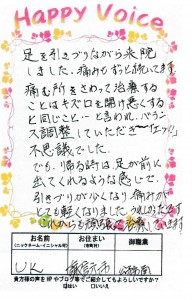 Happy Voice
足を引きづりながら来院
しました。痛みもずっと続いてます。
痛む所をさわって治療する
ことはキズ口を開け悪くする
と同じこと…と言われ、バラン
ス調整していただき
不思議でした。
でも、帰る時は足が前に
出てくれるような感じで、
引きづりが少なくなり痛みが
とても軽くなりました
お名前
(ニックネーム・イニシャル可)
お住まい
(市町村)
御職業
U.K
貴方様の声をHPやブログ等でご紹介してもよろしいですか?
はい □いいえ